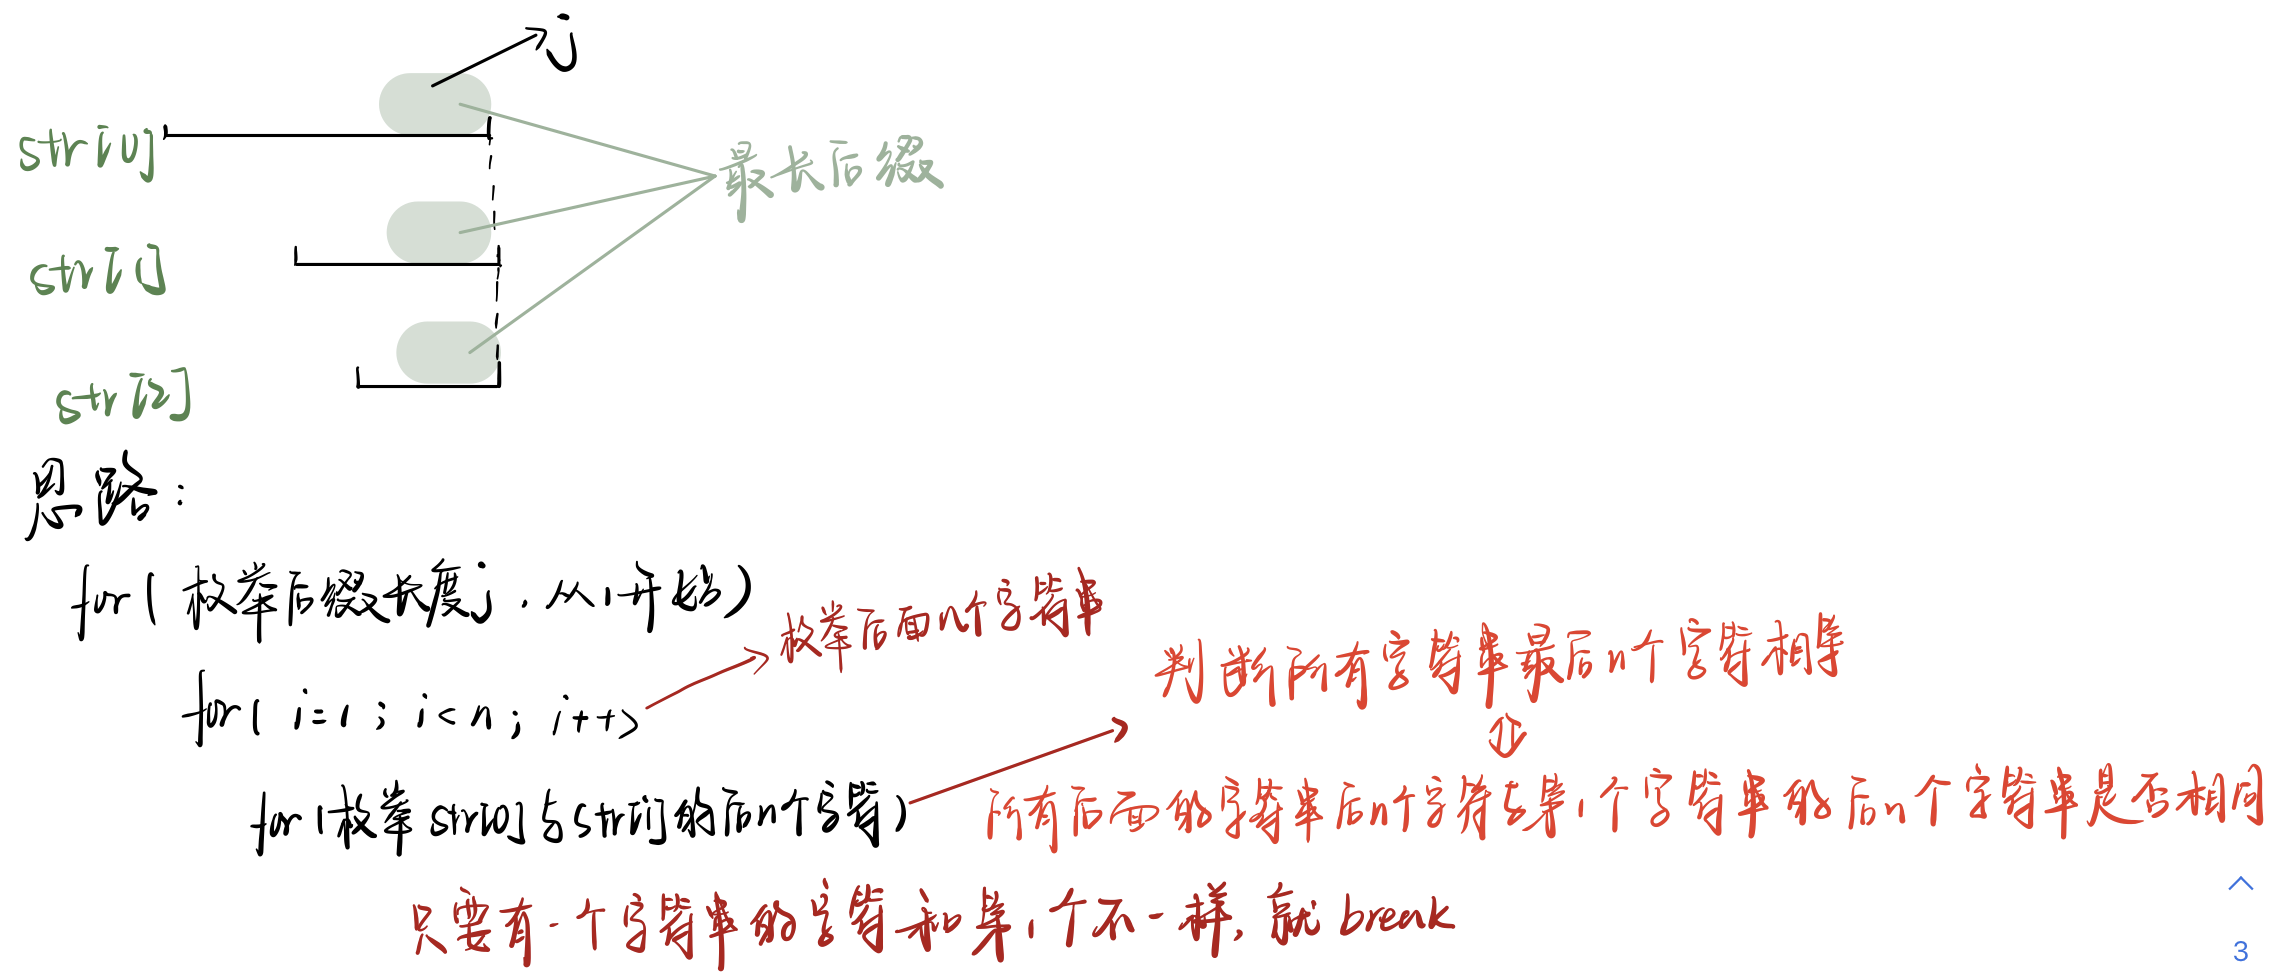 j
str[0]
最长后缀
str[1]
str[2]
思路：
for( 枚举后缀长度j，从1开始)
枚举后面n个字符串
for( i=1 ; i<n ; i++)
判断所有字符串最后n个字符相等
for(枚举str[0]与str[i]的后n个字符)
所有后面的字符串后n个字符与第1个字符串的后n个字符串是否相同
只要有一个字符串的字符和第1个不一样，就break
3